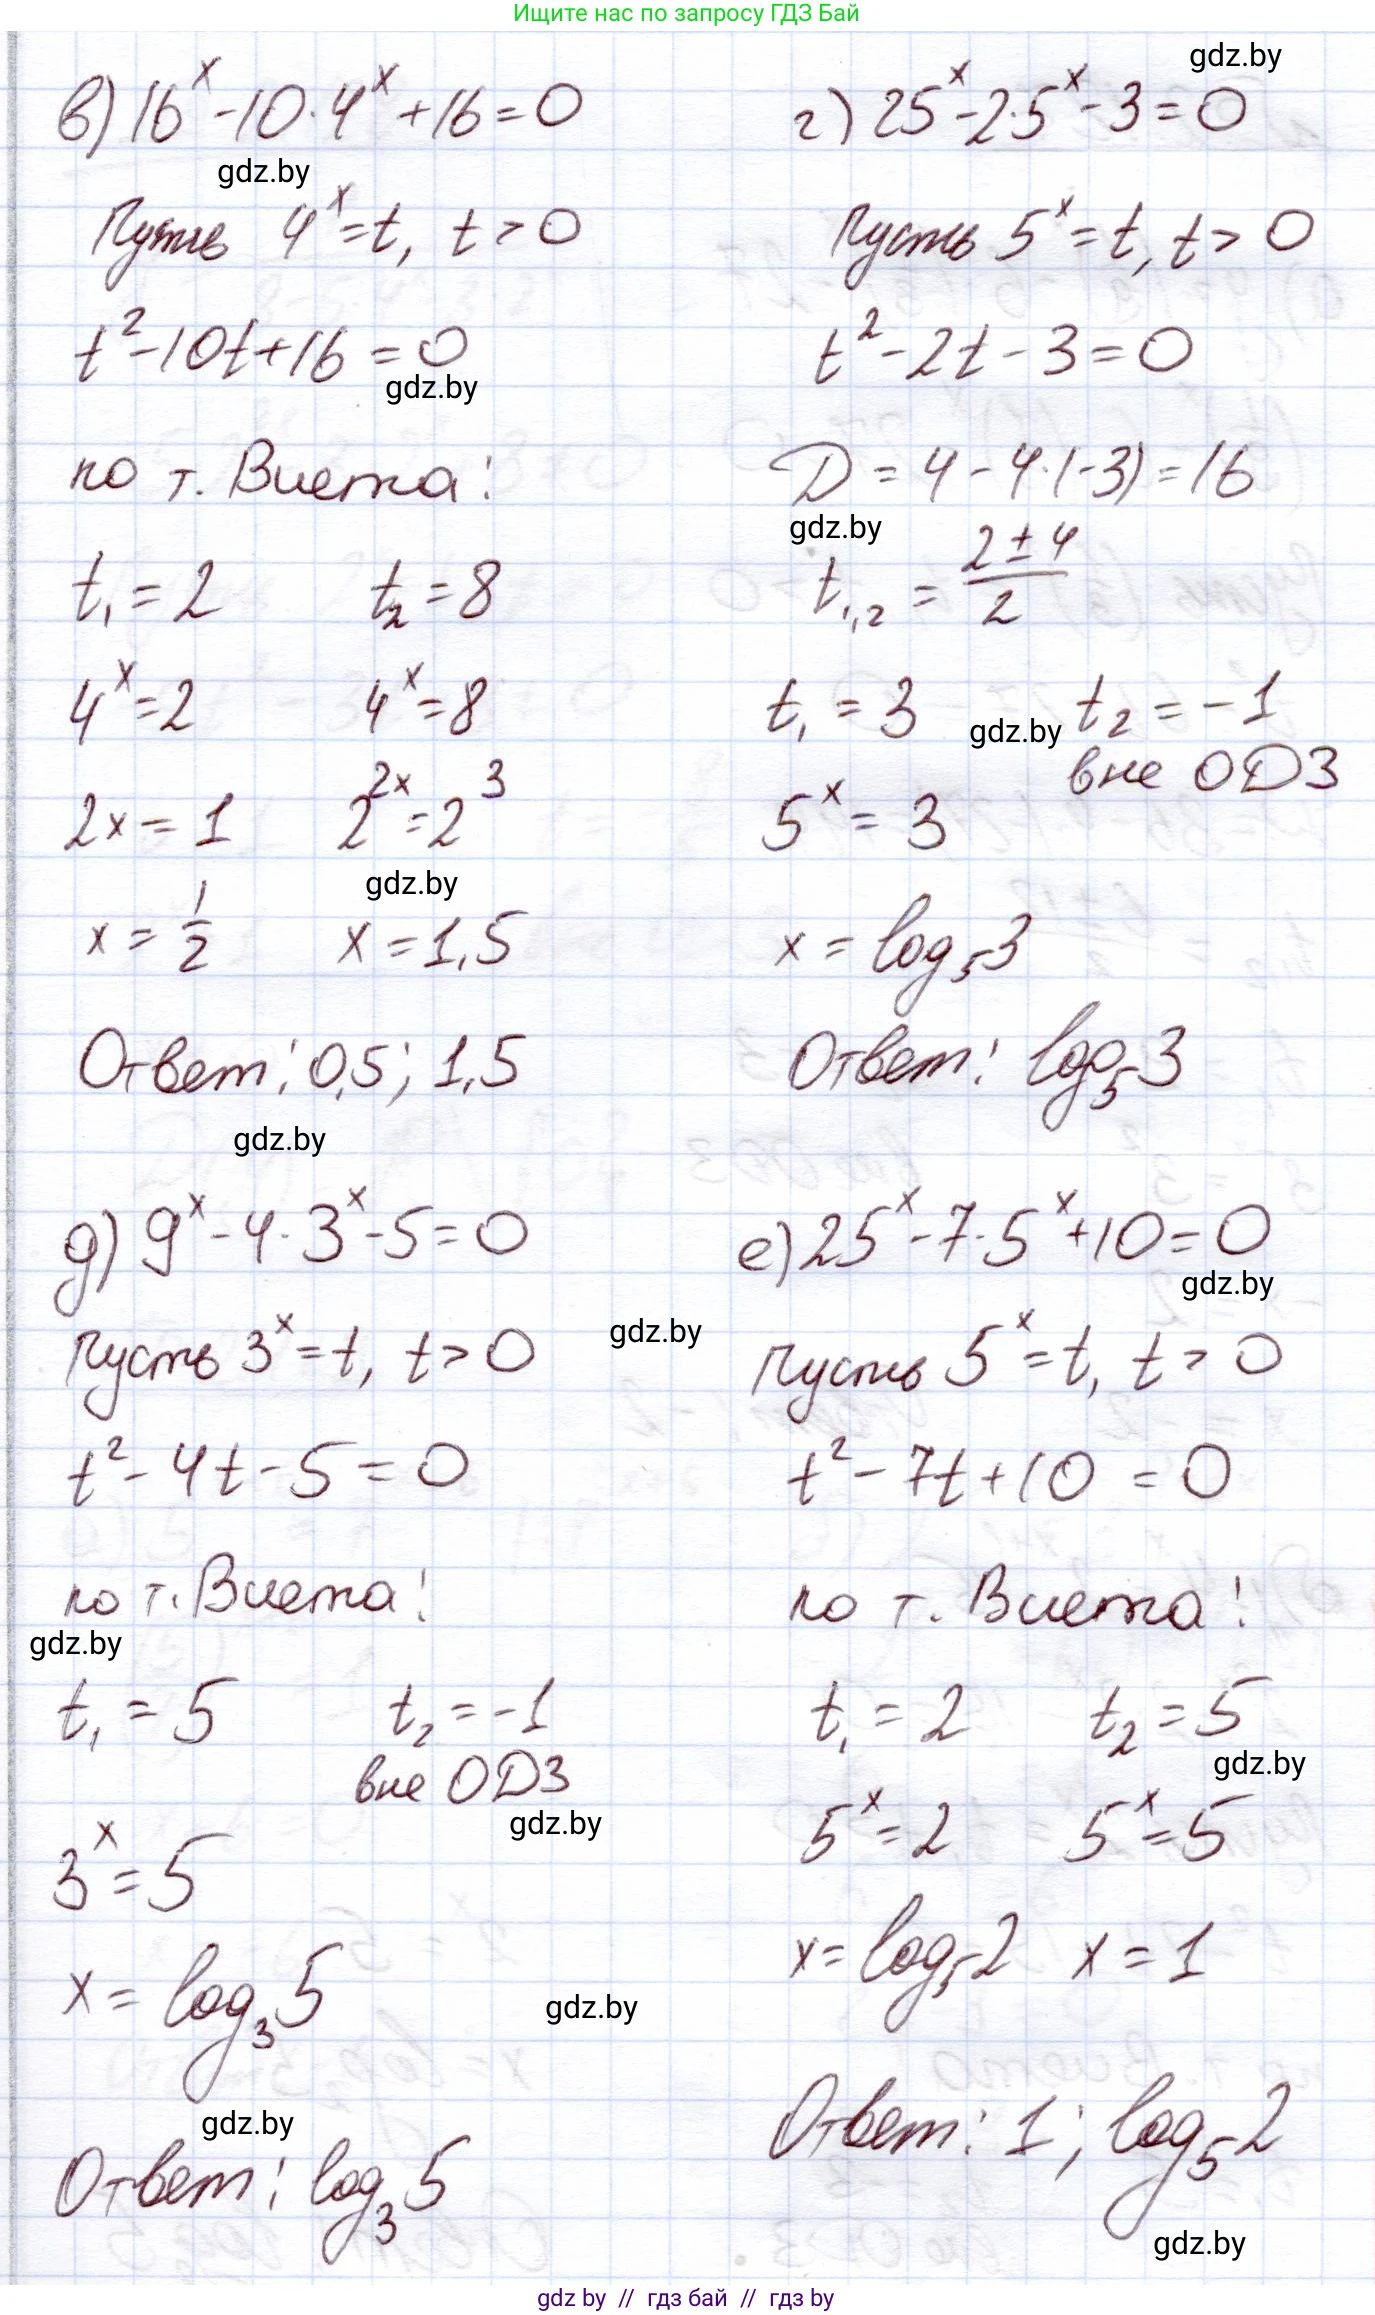 Ищите нас по запросу ГДЗ Бай
gdz.by
в) 16^x - 10·4^x + 16 = 0
gdz.by
Пусть 4^x = t, t > 0
t^2 - 10t + 16 = 0
gdz.by
по т. Виета:
t_1 = 2 t_2 = 8
4^x = 2 4^x = 8
2x = 1 2^{2x} = 2^3
gdz.by
x = 1/2 x = 1,5
Ответ: 0,5; 1,5
gdz.by
г) 25^x - 2·5^x - 3 = 0
Пусть 5^x = t, t > 0
t^2 - 2t - 3 = 0
D = 4 - 4·(-3) = 16
gdz.by
t_{1,2} = (2 ± 4)/2
t_1 = 3 gdz.by t_2 = -1
вне ОДЗ
5^x = 3
x = log_5 3
Ответ: log_5 3
д) 9^x - 4·3^x - 5 = 0
Пусть 3^x = t, t > 0
gdz.by
t^2 - 4t - 5 = 0
по т. Виета:
gdz.by
t_1 = 5 t_2 = -1
вне ОДЗ
gdz.by
3^x = 5
x = log_3 5
gdz.by
gdz.by
Ответ: log_3 5
е) 25^x - 7·5^x + 10 = 0
gdz.by
Пусть 5^x = t, t > 0
t^2 - 7t + 10 = 0
по т. Виета:
t_1 = 2 t_2 = 5
gdz.by
5^x = 2 5^x = 5
x = log_5 2 x = 1
Ответ: 1; log_5 2
gdz.by
gdz by // гдз бай // гдз by